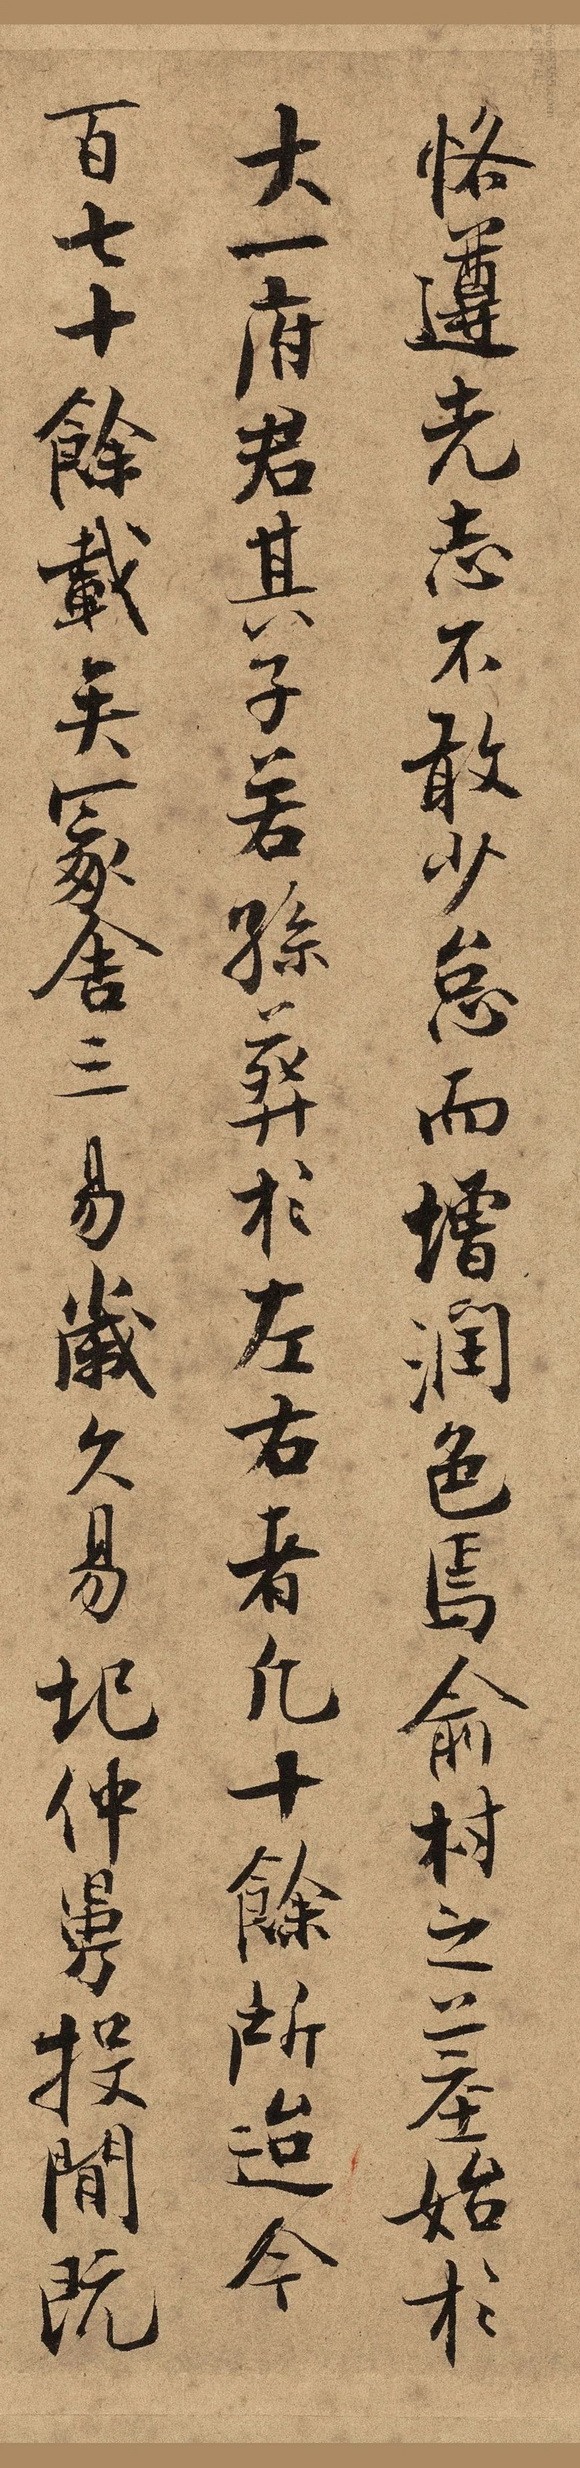 恪遵先志不敢少怠而增潤色焉俞村之墓始於
大一府君其子若孫葬於左右者凡十餘所迨今
百七十餘載矣冢舍三易歲久易圮仲勇投閒既